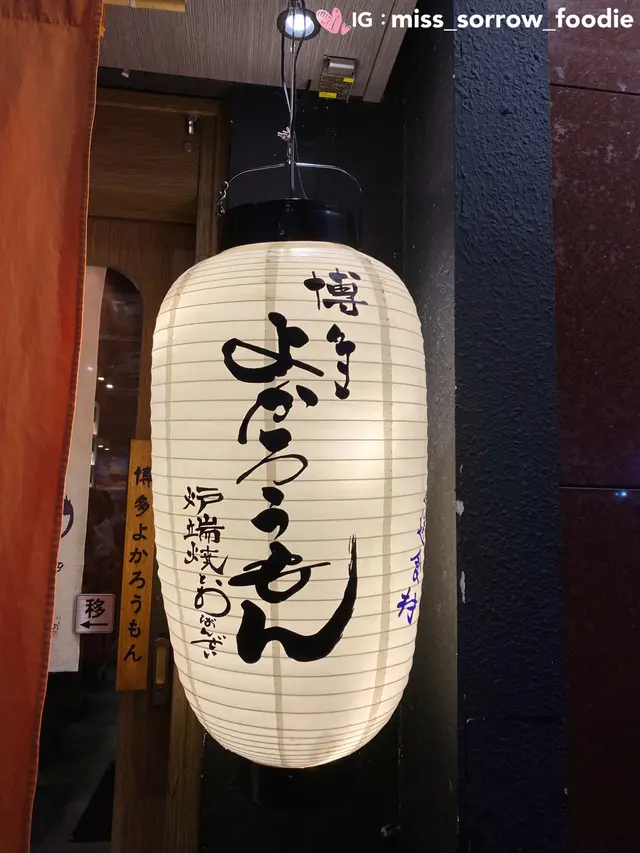 IG : miss_sorrow_foodie
博多
よかろうもん
炉端焼とおばんざい
博多よかろうもん
移